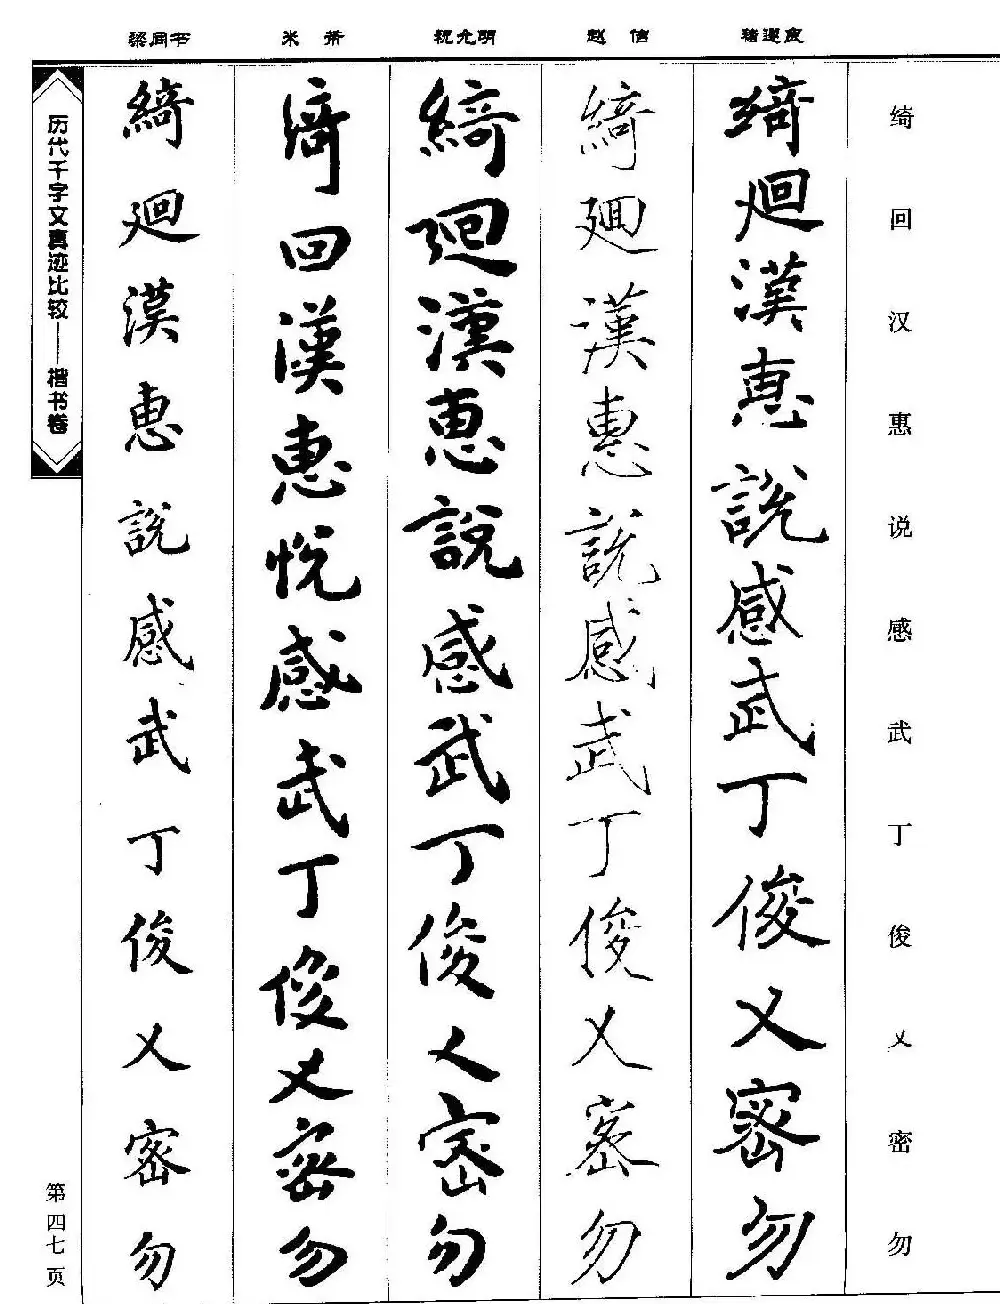 绮回汉惠说感武丁俊乂密勿
褚遂良
綺迴漢惠說感武丁俊乂密勿
赵佶
綺廻漢惠說感武丁俊乂密勿
祝允明
綺廻漢惠說感武丁俊人密勿
米芾
綺回漢惠悅感武丁俊乂密勿
梁同书
綺廻漢惠說感武丁俊乂密勿
历代千字文真迹比较——楷书卷
第四七页